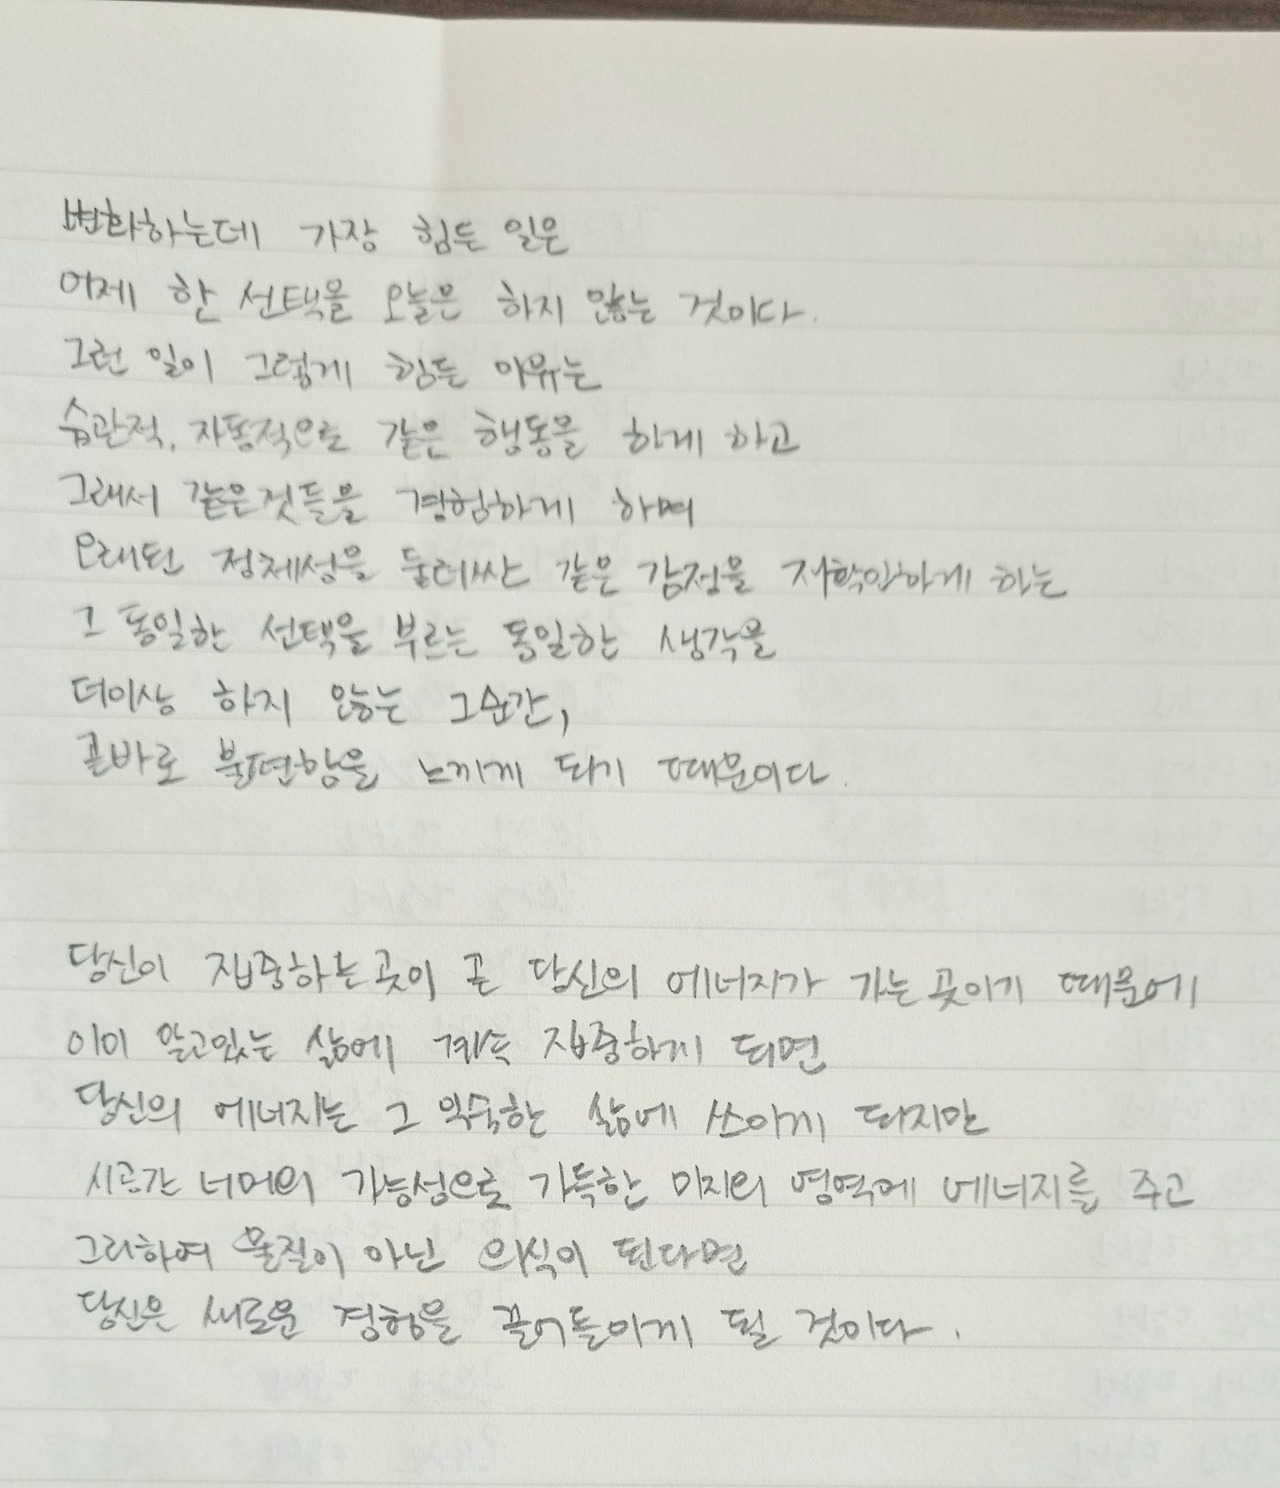 변화하는데 가장 힘든 일은
어제 한 선택을 오늘은 하지 않는 것이다.
그런 일이 그렇게 힘든 이유는
습관적, 자동적으로 같은 행동을 하게 하고
그래서 같은것들을 경험하게 하며
오래된 정체성을 둘러싼 같은 감정을 재확인하게 하는
그 동일한 선택을 부르는 동일한 생각을
더이상 하지 않는 그순간,
곧바로 불편함을 느끼게 되기 때문이다.
당신이 집중하는 곳이 곧 당신의 에너지가 가는 곳이기 때문에
이미 알고있는 삶에 계속 집중하게 되면
당신의 에너지는 그 익숙한 삶에 쓰이게 되지만
시공간 너머의 가능성으로 가득한 미지의 영역에 에너지를 주고
그리하여 물질이 아닌 의식이 된다면
당신은 새로운 경험을 끌어들이게 될 것이다.